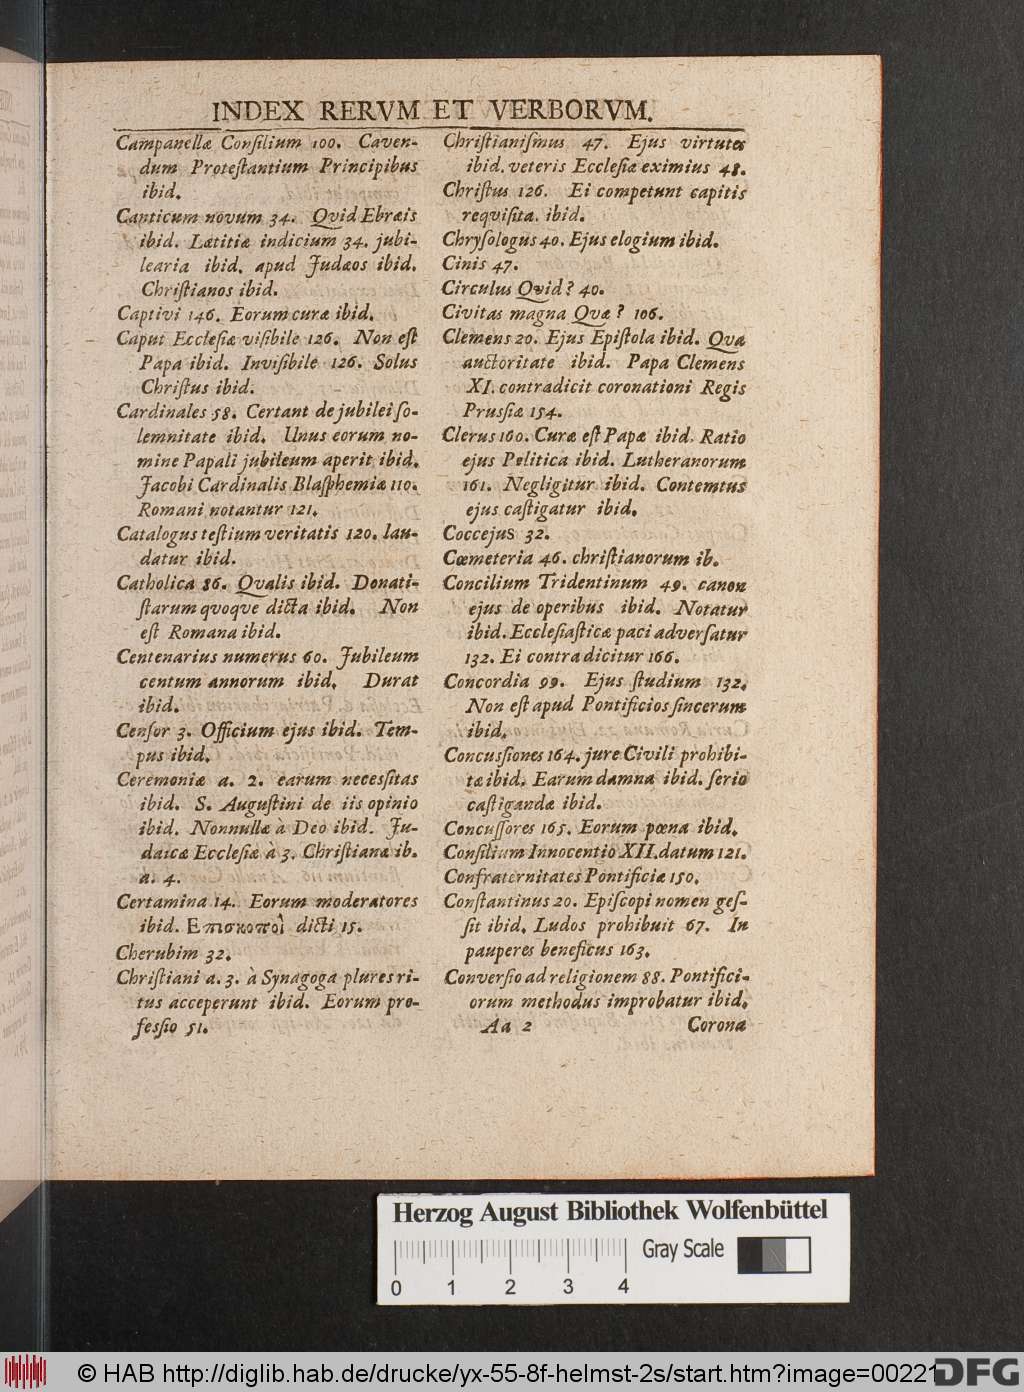 INDEX RERVM ET VERBORVM.
Campanellæ Conſilium 100. Caven-
dum Proteſtantium Principibus
ibid.
Canticum novum 34. Qvid Ebræis
ibid. Lætitiæ indicium 34. jubi-
learia ibid. apud Judæos ibid.
Chriſtianos ibid.
Captivi 146. Eorum cura ibid.
Caput Eccleſiæ viſibile 126. Non eſt
Papa ibid. Inviſibile 126. Solus
Chriſtus ibid.
Cardinales 58. Certant de jubilei ſo-
lemnitate ibid. Unus eorum no-
mine Papali jubileum aperit ibid.
Jacobi Cardinalis Blaſphemia 110.
Romani notantur 121.
Catalogus teſtium veritatis 120. lau-
datur ibid.
Catholica 86. Qvalis ibid. Donati-
ſtarum qvoqve dicta ibid. Non
eſt Romana ibid.
Centenarius numerus 60. Jubileum
centum annorum ibid. Durat
ibid.
Cenſor 3. Officium ejus ibid. Tem-
pus ibid.
Ceremoniæ a. 2. earum neceſſitas
ibid. S. Auguſtini de iis opinio
ibid. Nonnullæ à Deo ibid. Ju-
daicæ Eccleſiæ à 3. Chriſtianæ ib.
a. 4.
Certamina 14. Eorum moderatores
ibid. Επισκοποὶ dicti 15.
Cherubim 32.
Chriſtiani a. 3. à Synagoga plures ri-
tus acceperunt ibid. Eorum pro-
feſſio 51.
Chriſtianiſmus 47. Ejus virtutes
ibid. veteris Eccleſiæ eximius 48.
Chriſtus 126. Ei competunt capitis
reqviſita. ibid.
Chryſologus 40. Ejus elogium ibid.
Cinis 47.
Circulus Qvid? 40.
Civitas magna Qvæ? 106.
Clemens 20. Ejus Epiſtola ibid. Qva
auctoritate ibid. Papa Clemens
XI. contradicit coronationi Regis
Pruſſiæ 154.
Clerus 160. Curæ eſt Papæ ibid. Ratio
ejus Politica ibid. Lutheranorum
161. Negligitur ibid. Contemtus
ejus caſtigatur ibid.
Coccejus 32.
Cœmeteria 46. chriſtianorum ib.
Concilium Tridentinum 49. canon
ejus de operibus ibid. Notatur
ibid. Eccleſiaſticæ paci adverſatur
132. Ei contradicitur 166.
Concordia 99. Ejus ſtudium 132.
Non eſt apud Pontificios ſincerum
ibid.
Concusſiones 164. jure Civili prohibi-
tæ ibid. Earum damna ibid. ſerio
caſtigandæ ibid.
Concuſſores 165. Eorum pœna ibid.
Conſilium Innocentio XII. datum 121.
Confraternitates Pontificiæ 150.
Conſtantinus 20. Epiſcopi nomen geſ-
ſit ibid. Ludos prohibuit 67. In
pauperes beneficus 163.
Converſio ad religionem 88. Pontifici-
orum methodus improbatur ibid.
Aa 2 Corona
Herzog August Bibliothek Wolfenbüttel
Gray Scale
0 1 2 3 4
© HAB http://diglib.hab.de/drucke/yx-55-8f-helmst-2s/start.htm?image=00221
DFG